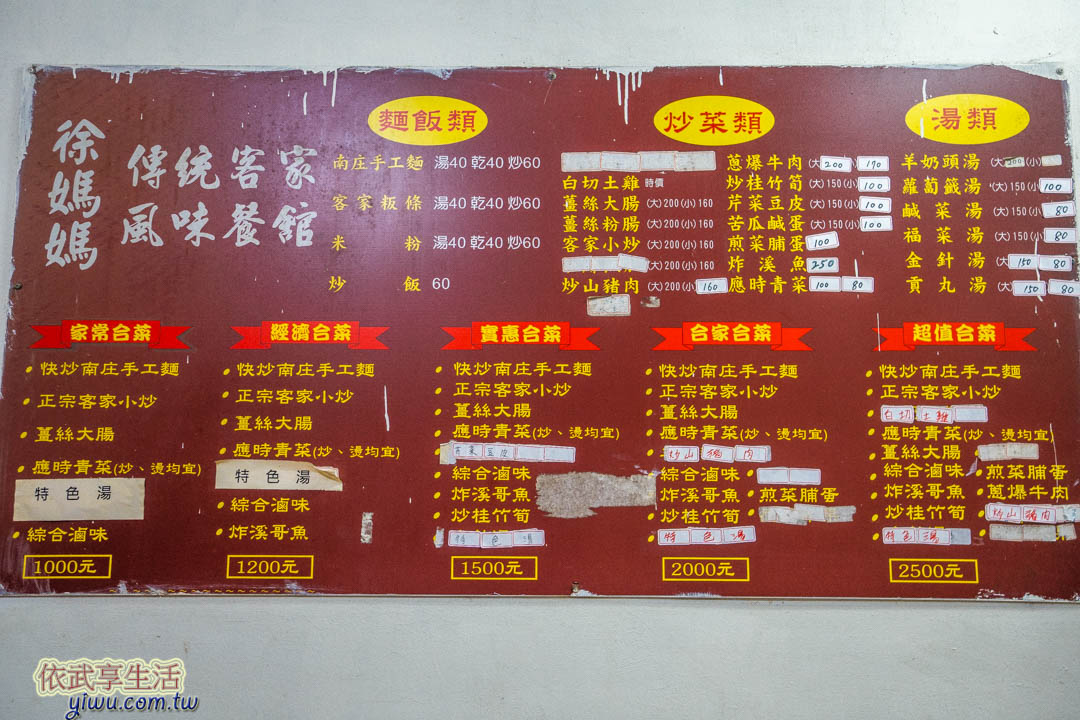 徐媽媽
傳統客家
風味餐館
麵飯類
南庄手工麵 湯40 乾40 炒60
客家粄條 湯40 乾40 炒60
米粉 湯40 乾40 炒60
炒飯 60
炒菜類
白切土雞 時價
薑絲大腸 (大)200(小)160
薑絲粉腸 (大)200(小)160
客家小炒 (大)200(小)160
(大)200(小)160
炒山豬肉 (大)200(小)160
蔥爆牛肉 (大)200 170
炒桂竹筍 (大)150(小)100
芹菜豆皮 (大)150(小)100
苦瓜鹹蛋 (大)150(小)100
煎菜脯蛋 100
炸溪魚 250
應時青菜 100 80
湯類
羊奶頭湯 (大)200(小)
蘿蔔籤湯 (大)150(小)100
鹹菜湯 (大)150(小)80
福菜湯 (大)150(小)80
金針湯 (大)150 80
貢丸湯 (大)150 80
家常合菜
快炒南庄手工麵
正宗客家小炒
薑絲大腸
應時青菜(炒、燙均宜)
特色湯
綜合滷味
1000元
經濟合菜
快炒南庄手工麵
正宗客家小炒
薑絲大腸
應時青菜(炒、燙均宜)
特色湯
綜合滷味
炸溪哥魚
1200元
實惠合菜
快炒南庄手工麵
正宗客家小炒
薑絲大腸
應時青菜(炒、燙均宜)
芹菜豆皮
綜合滷味
炸溪哥魚
炒桂竹筍
特色湯
1500元
合家合菜
快炒南庄手工麵
正宗客家小炒
薑絲大腸
應時青菜(炒、燙均宜)
炒山豬肉
綜合滷味
炸溪哥魚
煎菜脯蛋
炒桂竹筍
特色湯
2000元
超值合菜
快炒南庄手工麵
正宗客家小炒
白切土雞
應時青菜(炒、燙均宜)
薑絲大腸
綜合滷味
煎菜脯蛋
炸溪哥魚
蔥爆牛肉
炒桂竹筍
炒山豬肉
特色湯
2500元
依武享生活
yiwu.com.tw